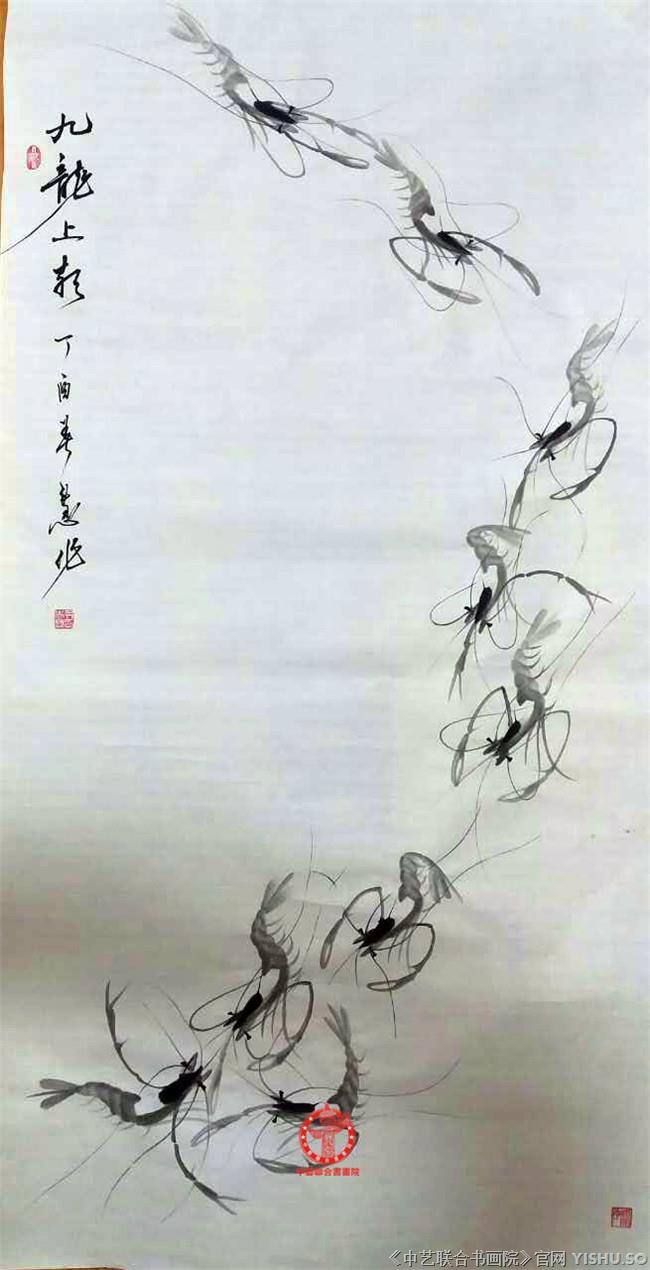 九龍上朝 丁酉春 作
中藝聯合書畫院
《中艺联合书画院》官网 YISHU.SO